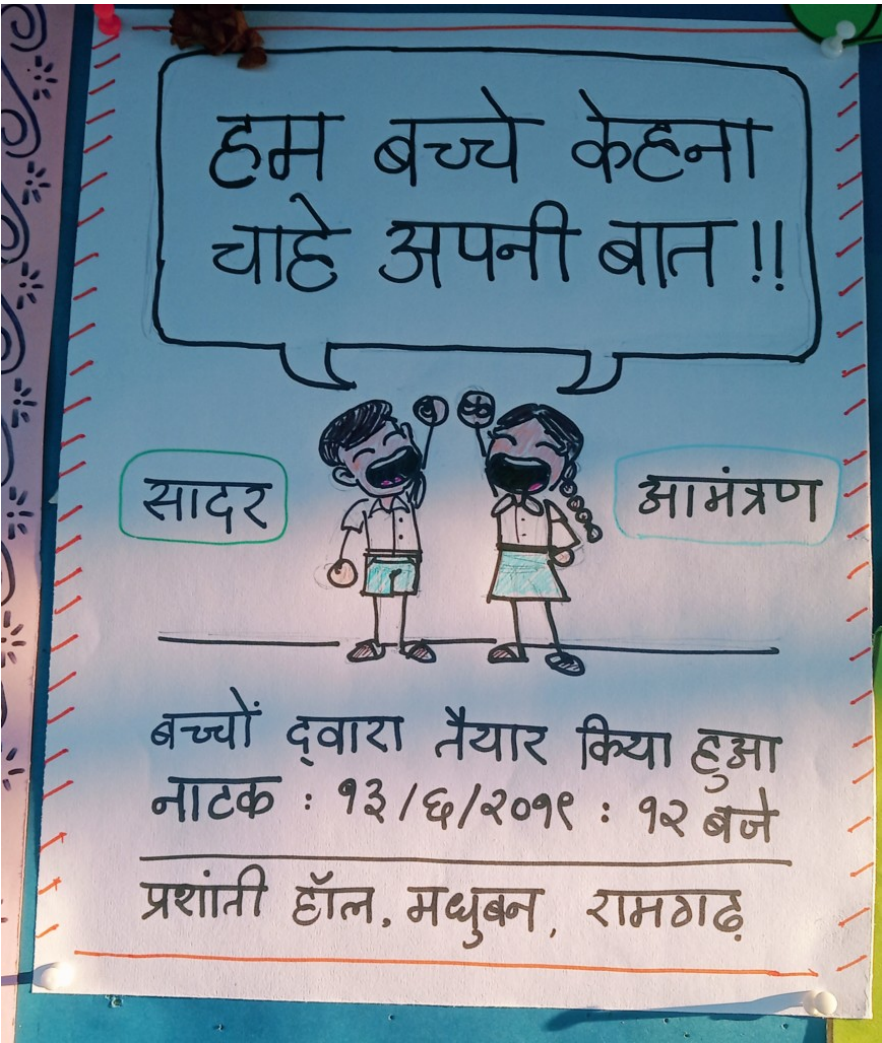 हम बच्चे केहना
चाहे अपनी बात !!
सादर
आमंत्रण
बच्चों द्वारा तैयार किया हुआ
नाटक : १३/६/२०१९ : १२ बजे
प्रशांती हॉल, मधुबन, रामगढ़